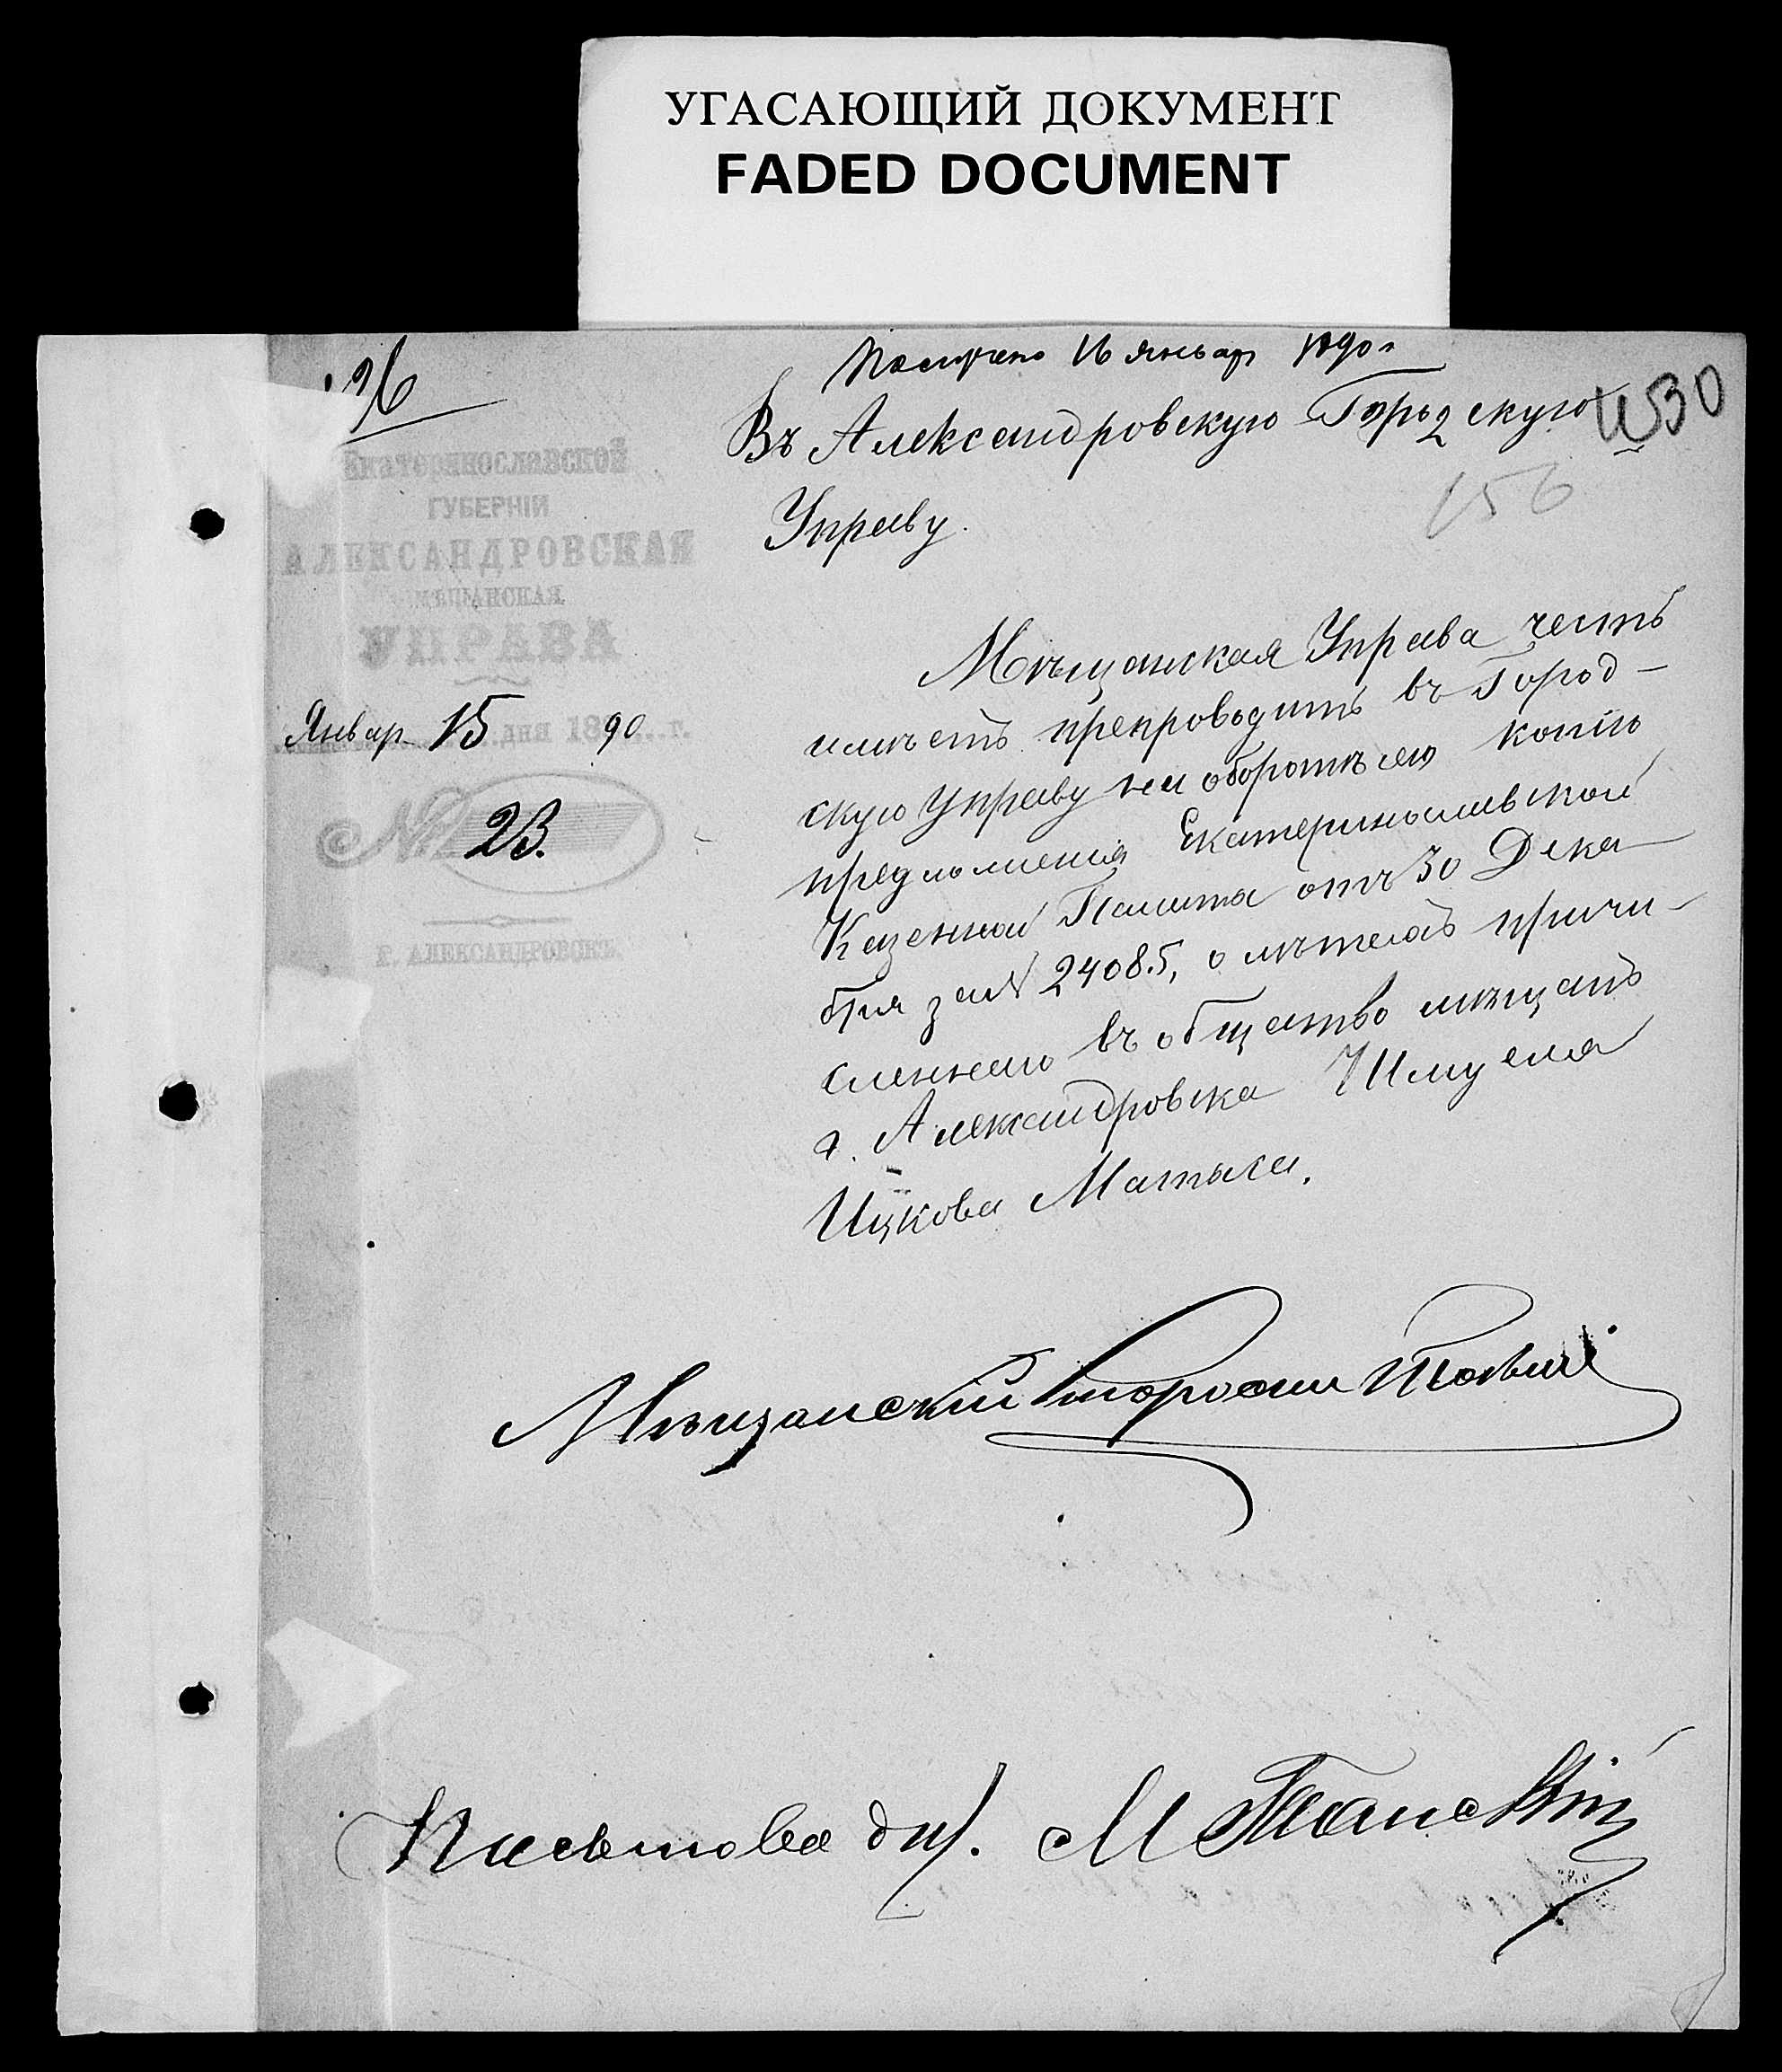 УГАСАЮЩИЙ ДОКУМЕНТ
FADED DOCUMENT
Получено 16 Январ 1890 г
26
Въ Александровскую Городскую
Управу.
№30
156
Екатеринославской
ГУБЕРНІИ
АЛЕКСАНДРОВСКАЯ
МѢЩАНСКАЯ
УПРАВА
Январ 15 дня 1890 г.
№ 23.
Г. АЛЕКСАНДРОВСКЪ.
Мѣщанская Управа честь
имѣетъ препроводить въ Город-
скую Управу на оборотѣ сего копію
предложенія Екатеринославской
Казенной Палаты отъ 30 Дека-
бря за № 24085, о причи-
сленнаго въ общество мѣщанъ
г. Александровска Шмуеля
Ицкова Матыса.
Мѣщанскій Староста
Письмовод.